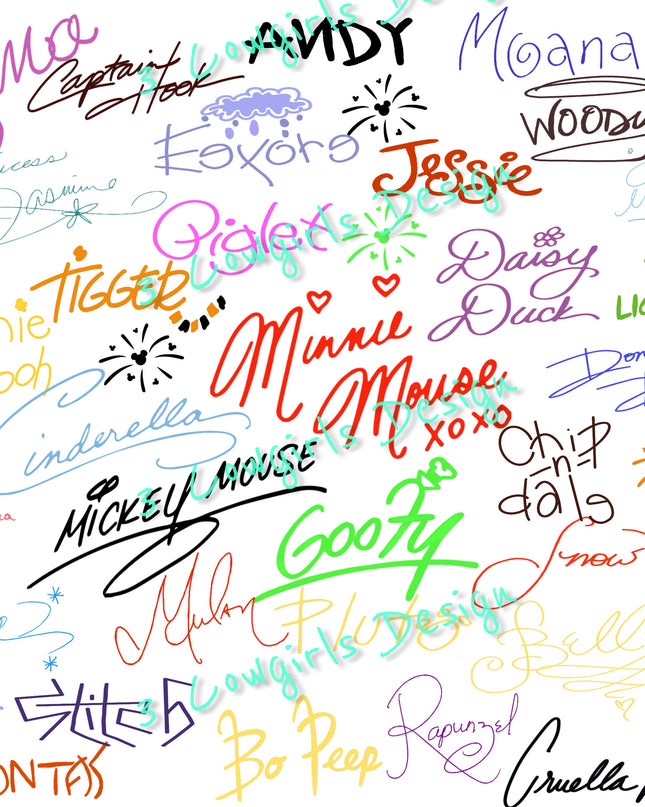 Captain
Hook
ANDY
Moana
WOODY
Eeyore
Jessie
Jasmine
Piglet
TIGGER
Daisy
Duck
Minnie
Mouse
XOXO
Cinderella
MICKEY MOUSE
Chip
n
dale
Goofy
Snow
Mulan
PLUTO
Stitch
Bo Peep
Rapunzel
Cruella
3 Cowgirls Design
3 Cowgirls Design
3 Cowgirls Design
3 Cowgirls Design